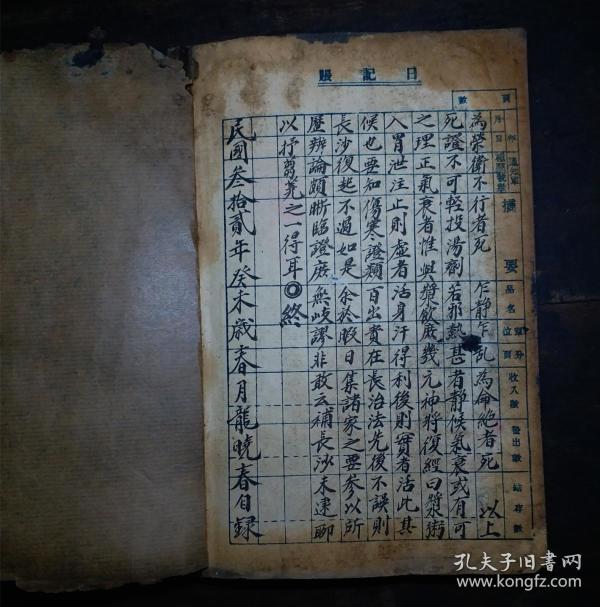 日記賬
頁數
年
月
日
摘要
品名
單位
收入數
發出數
結存數
為榮衛不行者死 乍靜乍亂為侖絕者死 以上
死證不可輕投湯劑若邪熱甚者靜候氣衰或有可
之理正氣衰者惟與漿飲庶幾元神將復經曰漿粥
入胃泄注止則虛者活身汗得利後則實者活此其
候也要知傷寒證類百出貴在長治法先後不誤則
長沙復起不過如是余於暇日集諸家之要參以所
歷辨論頗晰臨證庶無岐謬非敢云補長沙未逮聊
以抒芻蕘之一得耳◎終
民國叁拾貳年癸未歲春月龍曉春自錄
孔夫子旧书网
www.kongfz.com